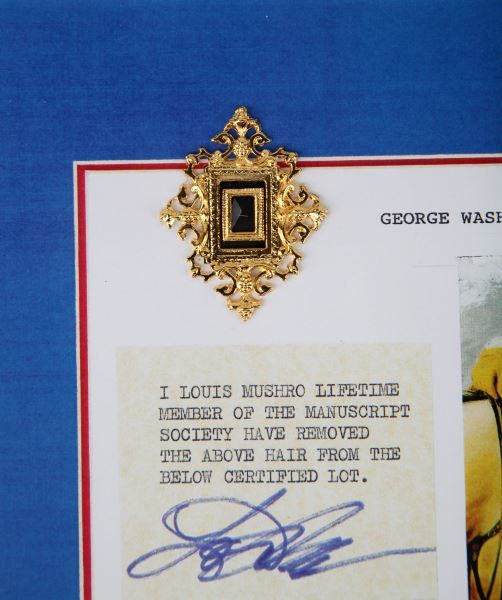 GEORGE WASH
I LOUIS MUSHRO LIFETIME
MEMBER OF THE MANUSCRIPT
SOCIETY HAVE REMOVED
THE ABOVE HAIR FROM THE
BELOW CERTIFIED LOT.